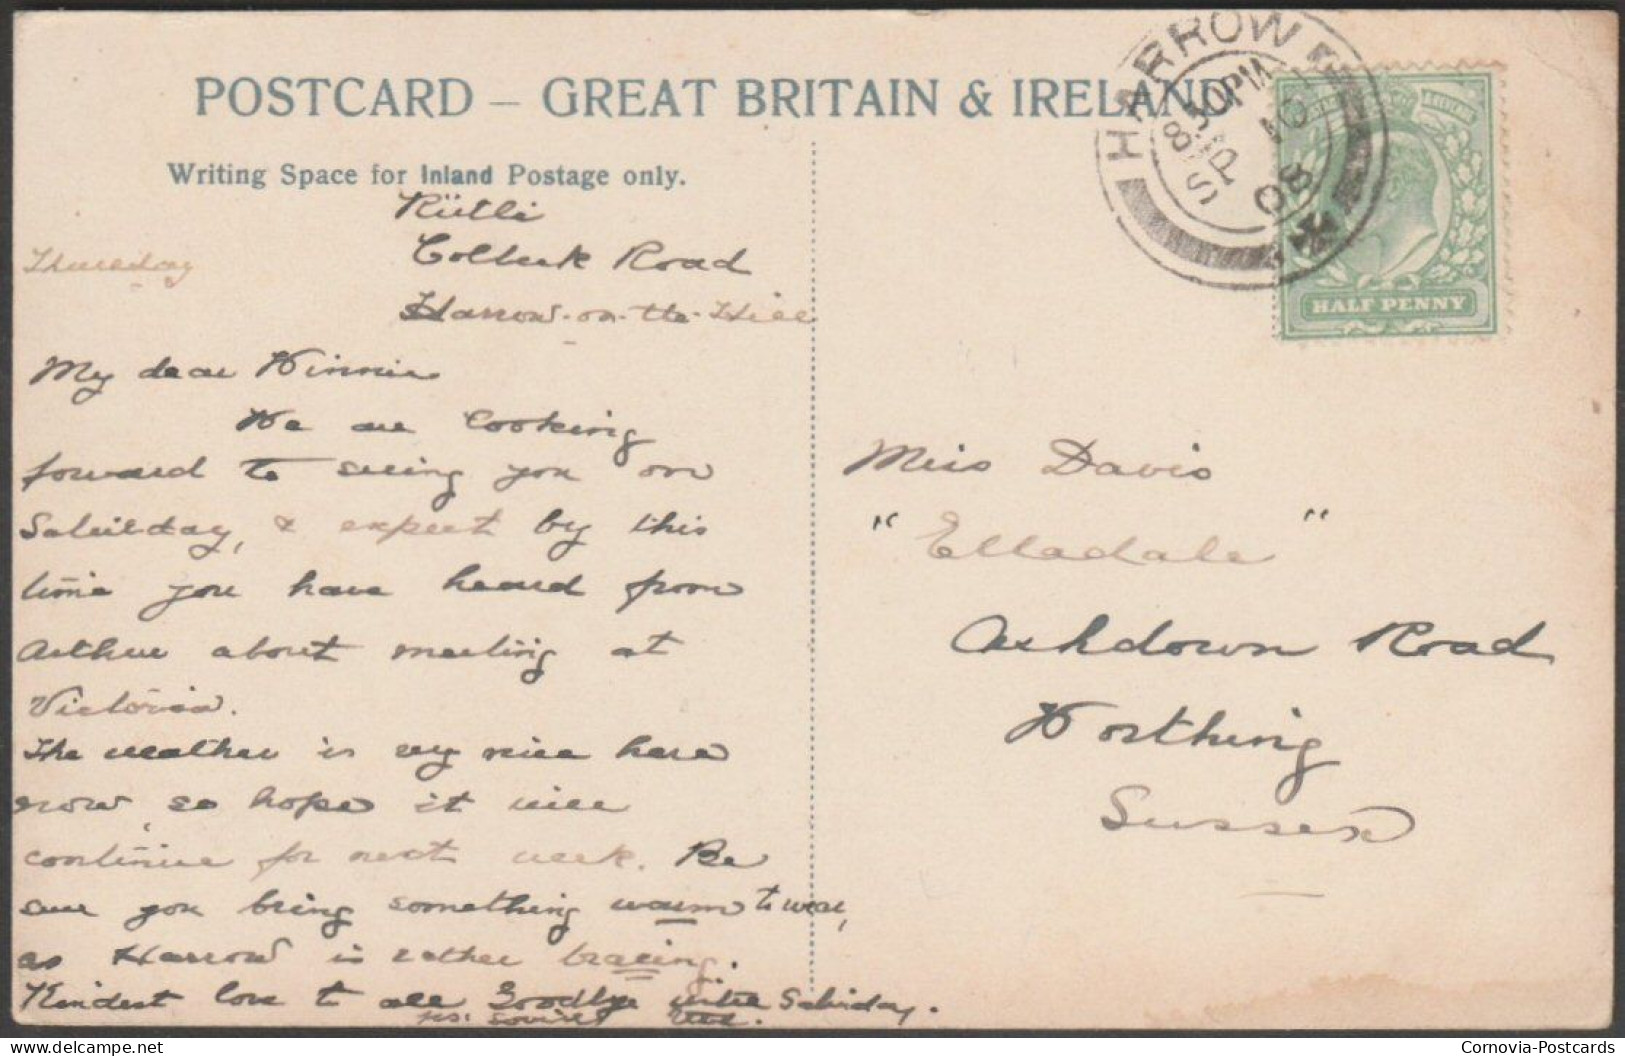 POSTCARD – GREAT BRITAIN & IRELAND
Writing Space for Inland Postage only.
HARROW
8 30 PM
SP 10
08
HALF PENNY
Rütli
Colbeck Road
Harrow-on-the-Hill
Thursday
My dear Winnie
We are looking
forward to seeing you on
Saturday, & expect by this
time you have heard from
Arthur about meeting at
Victoria.
The weather is very nice here
now, so hope it will
continue for next week. Be
sure you bring something warm to wear,
as Harrow is rather bracing.
Kindest love to all Goodbye until Saturday.
Miss Davis
"Elladale"
Ashdown Road
Worthing
Sussex
© Cornovia-Postcards